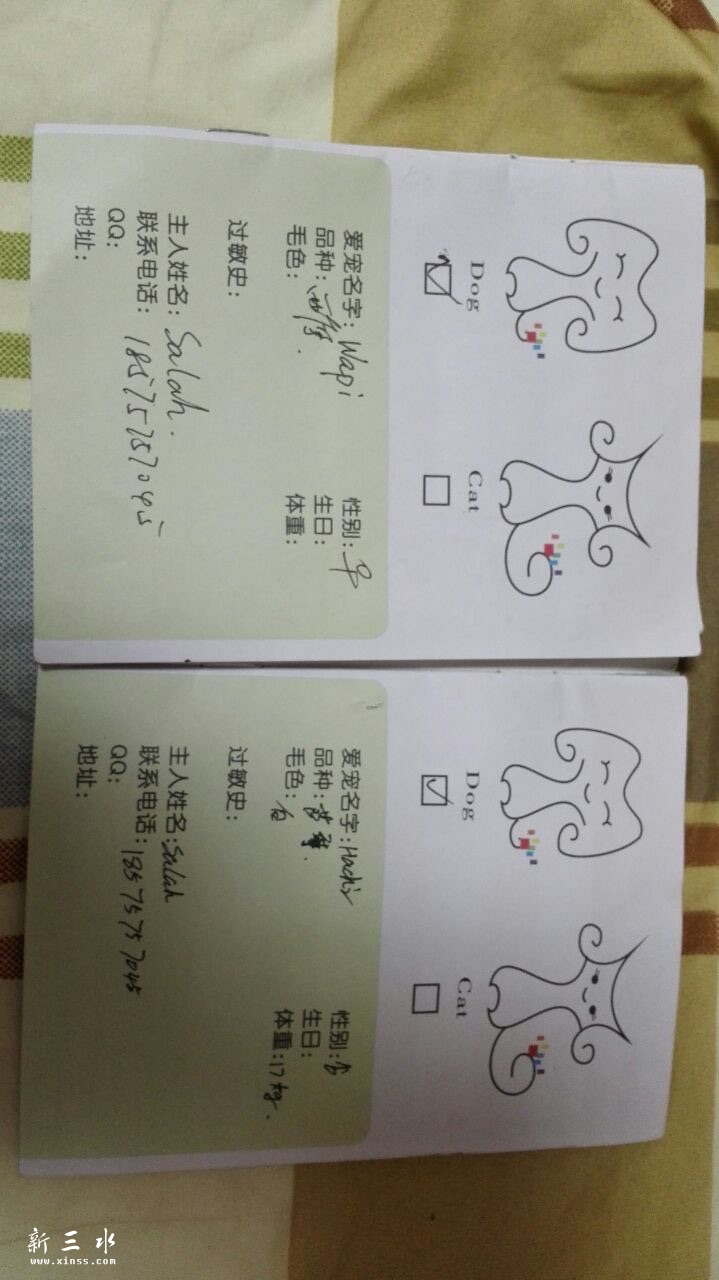 Dog
Cat
爱宠名字：Wapi
性别：♀
品种：
生日：
毛色：
体重：
过敏史：
主人姓名：Salah.
联系电话：18575757045
QQ：
地址：
Dog
Cat
爱宠名字：Hachi
性别：
品种：
生日：
毛色：白
体重：17kg.
过敏史：
主人姓名：Salah
联系电话：18575757045
QQ：
地址：
新三水
www.xinss.com